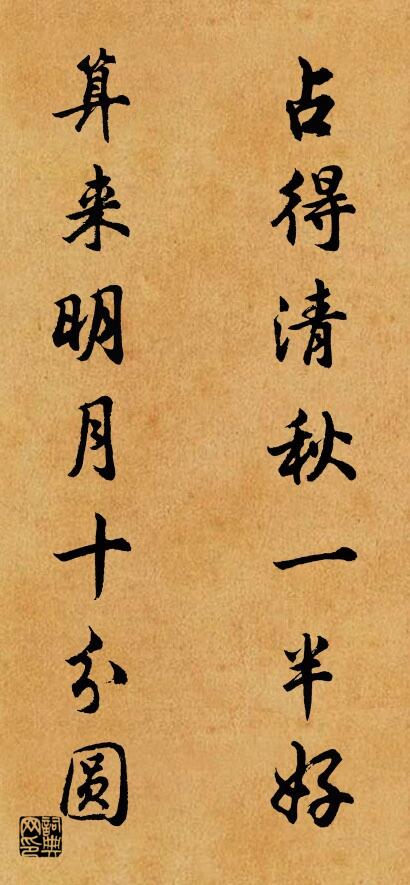 占得清秋一半好
算来明月十分圆